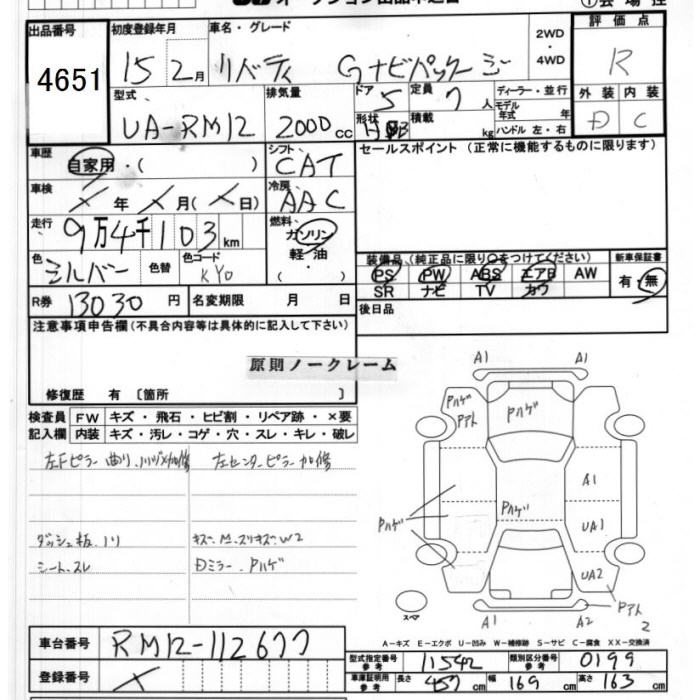 出品番号
4651
初度登録年月
15 2月
車名・グレード
リバティ Gナビパッケージ
2WD
・
4WD
評価点
R
型式
UA-RM12
排気量
2000cc
ドア
5
定員
7人
形状
積載
kg
ディーラー・並行
モデル年式 年
ハンドル 左・右
外装 内装
D C
車歴
自家用・( )
シフト
CAT
セールスポイント (正常に機能するものに限ります)
車検
×年×月(×日)
冷房
AAC
走行
9万4千103km
燃料
ガソリン
軽・油
色
シルバー
色替
色コード
KY0
装備品(純正品に限り○をつけてください)
PS PW ABS エアB AW
SR ナビ TV カワ
新車保証書
有・無
R券 13030円
名変期限 月 日
後日品
注意事項申告欄(不具合内容等は具体的に記入して下さい)
原則ノークレーム
修復歴 有 〔箇所 〕
検査員記入欄
FW キズ・飛石・ヒビ割・リペア跡・×要
内装 キズ・汚レ・コゲ・穴・スレ・キレ・破レ
左Fピラー曲り
左センターピラー加修
ダッシュ板、ノリ
シート、スレ
Dミラー、Pハゲ
A1 A1
Pハゲ
Pアト
Pハゲ
A1
Pハゲ
Pハゲ
UA1
UA2
Pアト
2
スペア
A1 A2
A-キズ E-エクボ U-凹み W-補修跡 S-サビ C-腐食 XX-交換済
車台番号
RM12-112677
登録番号
×
型式指定番号
参考
11542
類別区分番号
参考
0199
車庫証明用
参考
長さ 457cm 幅 169cm 高さ 163cm